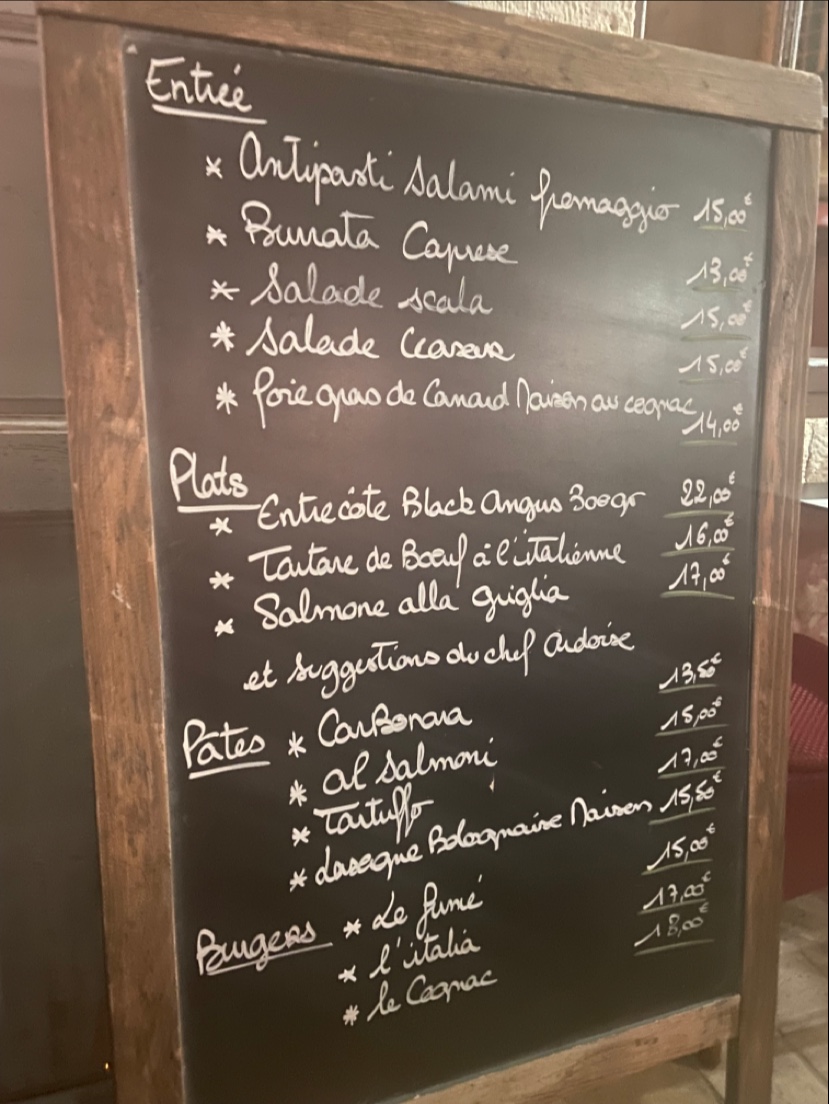 Entrée
* Antipasti Salami fromaggio 15,00€
* Burrata Caprese 13,00€
* Salade scala 15,00€
* Salade Ceasar 15,00€
* foie gras de Canard Maison au cognac 14,00€
Plats
* Entrecôte Black Angus 300gr 22,00€
* Tartare de Boeuf à l'italienne 16,00€
* Salmone alla griglia 17,00€
et suggestions du chef ardoise
Pâtes * Carbonara 13,50€
* al salmoni 15,00€
* Tartuffo 17,00€
* Lasagne Bolognaise Maison 15,50€
Burgers * Le fumé 15,00€
* l'italia 17,00€
* le Cognac 18,00€